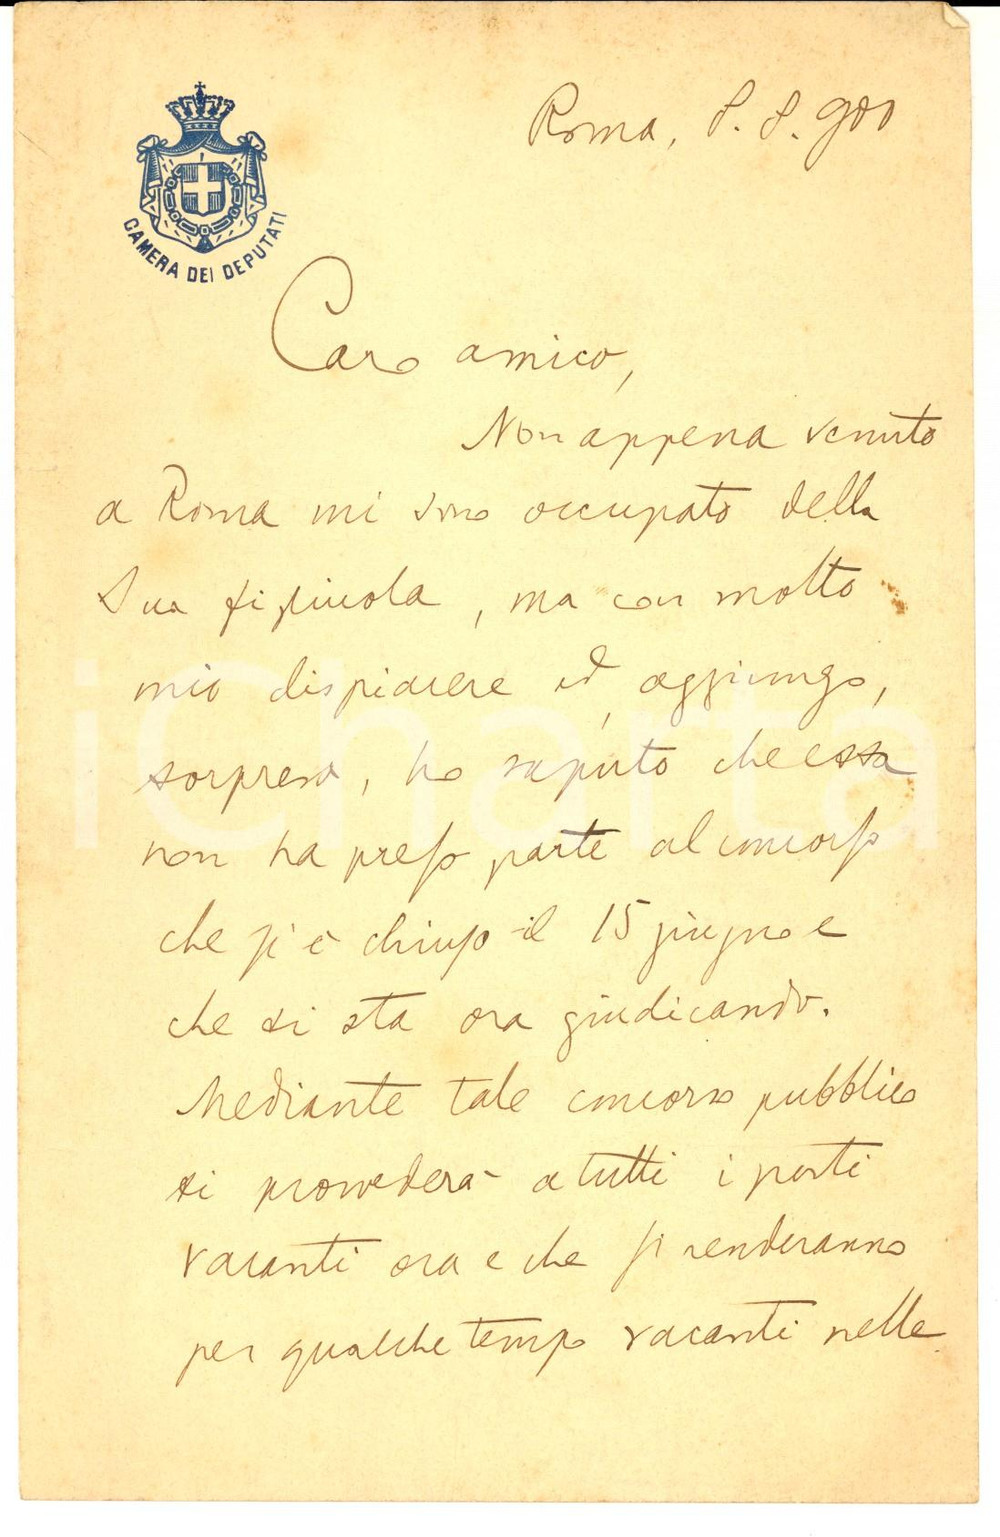 Roma, 8. 8. 900
CAMERA DEI DEPUTATI
Caro amico,
Non appena venuto
a Roma mi sono occupato della
Sua figliuola, ma con molto
mio dispiacere ed, aggiungo,
sorpresa, ho saputo che essa
non ha preso parte al concorso
che si è chiuso il 15 giugno e
che si sta ora giudicando.
Mediante tale concorso pubblico
si provvederà a tutti i posti
vacanti ora e che si renderanno
per qualche tempo vacanti nelle
iCharta